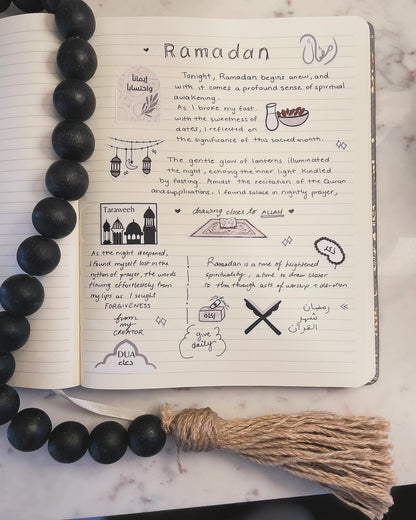 Ramadan
رمضان
إيمانًا
واحتسابًا
Tonight, Ramadan begins anew, and
with it comes a profound sense of spiritual
awakening.
As I broke my fast
with the sweetness of
dates, I reflected on
the significance of this sacred month.
The gentle glow of lanterns illuminated
the night, echoing the inner light kindled
by fasting. Amidst the recitation of the Quran
and supplications, I found solace in nightly prayer,
Taraweeh
drawing closer to ALLAH
As the night deepened,
I found myself lost in the
rythm of prayer, the words
flowing effortlessly from
my lips as I sought
FORGIVENESS
from
my
CREATOR
DUA
دعاء
Ramadan is a time of heightened
spirituality, a time to draw closer
to Him through acts of worship + devotion
زكاة
give
daily
رمضان
شهر
القرآن